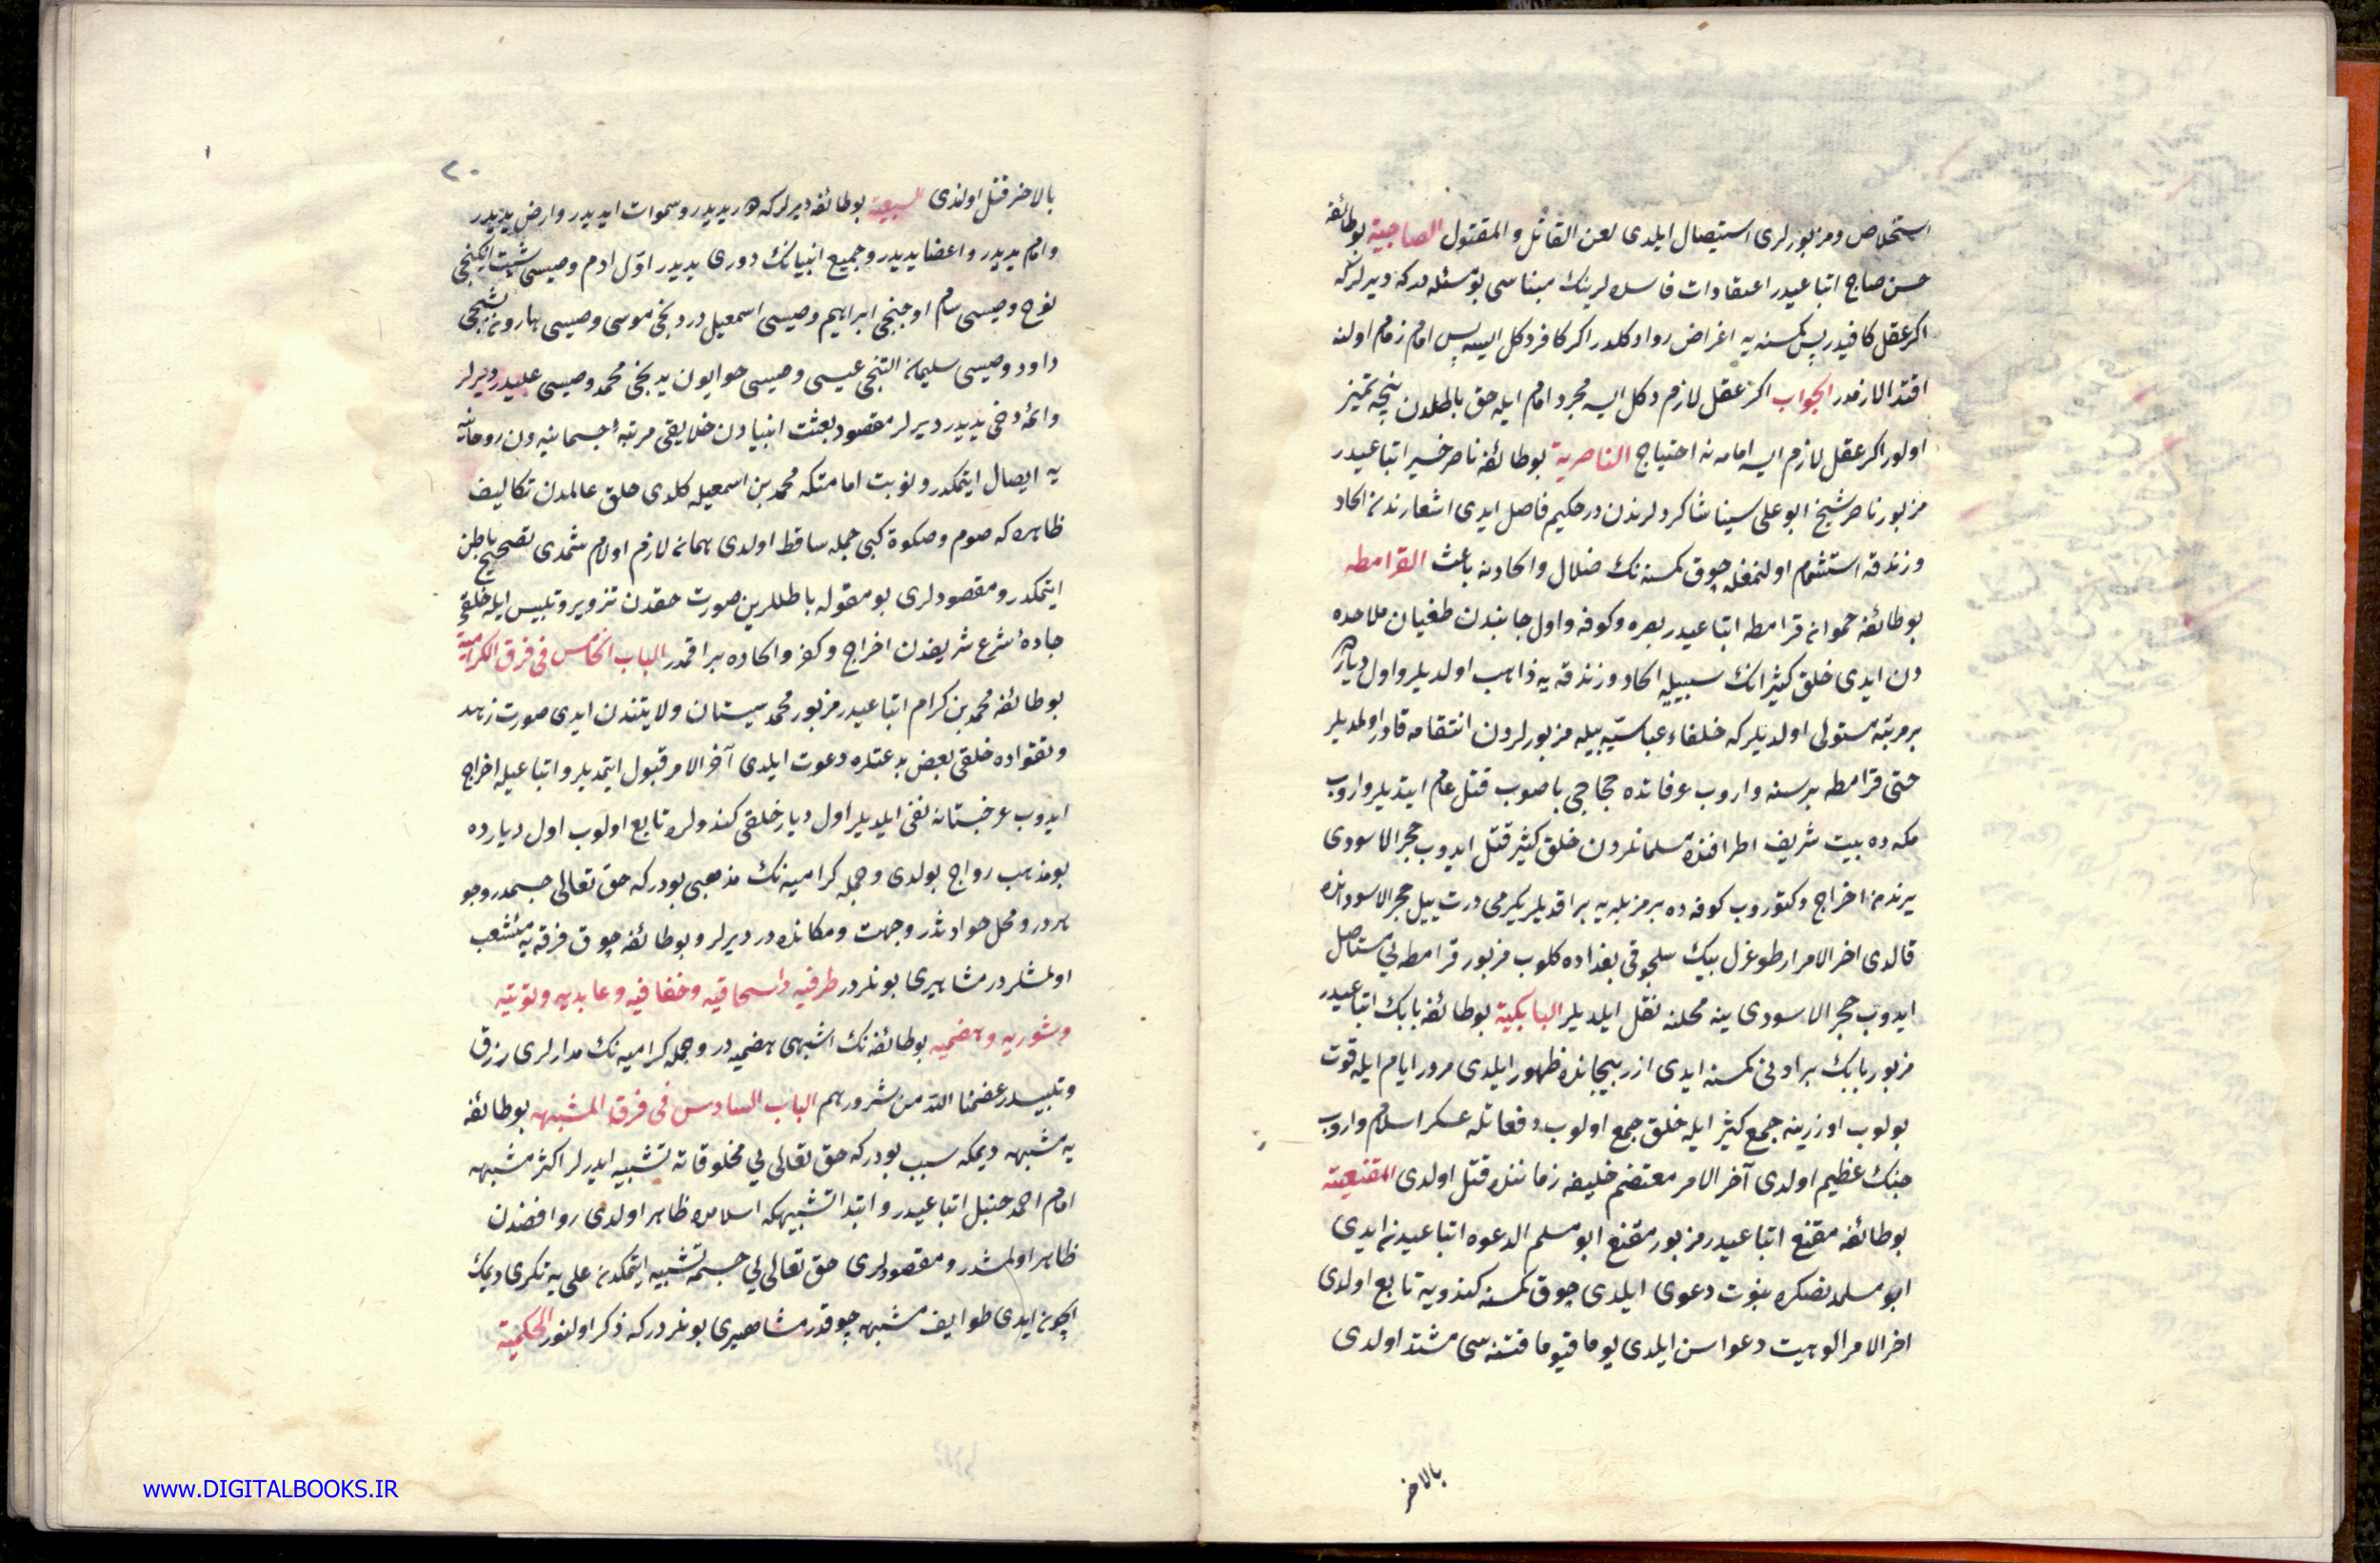 استخلاص ومزبورلری استیصال ایلدی لعن القاتل والمقتول الصاحیة بوطائفه
حسن صاح اتباعیدر اعتقادات فاسده لرینك مبناسی بو مسئله در که دیرلر که
اکر عقل کافیدر پس کمسنه یه اغراض روا دکلدر اکر کافر دکل ایسه پس امام زمام اولنه
اقتدا لازمدر الجواب اکر عقل لازم دکل ایسه مجرد امام ایله حق باطلدن نیجه تمیز
اولور اکر عقل لازم ایسه امامه نه احتیاج الناصریة بوطائفه ناصر خسیر اتباعیدر
مزبور ناصر شیخ ابو علی سینا شاکردلرندن در حکیم فاضل ایدی اشعارندن الحاد
وزندقه استشمام اولنمغله چوق کمسنه نك ضلال والحادنه باعث القرامطه
بوطائفه حموانه قرامطه اتباعیدر بصره وکوفه واول جانبدن طغیان ملاحده
دن ایدی خلق کثیر انك سببیله الحاد وزندقه یه ذاهب اولدیلر واول دیاره
بر مرتبه مستولی اولدیلر که خلفاء عباسیه بیله مزبورلردن انتقامه قادر اولمدیلر
حتی قرامطه بر سنه واروب عرفاتده حجاجی باصوب قتل عام ایتدیلر واروب
مکه ده بیت شریف اطرافنده مسلمانلردن خلق کثیر قتل ایدوب حجر الاسودی
یرندن اخراج وکتوروب کوفه ده بر مزبله یه براقدیلر یکرمی درت ییل حجر الاسود انده
قالدی اخر الامر ارطوغرل بیك سلجوقی بغداده کلوب مزبور قرامطه یی مستاصل
ایدوب حجر الاسودی ینه محلنه نقل ایلدیلر البابکیة بوطائفه بابك اتباعیدر
مزبور بابك بر ادنی کمسنه ایدی ازربیجانده ظهور ایلدی مرور ایام ایله قوت
بولوب اوزرینه جمع کثیر ایله خلق جمع اولوب دفعاتله عسکر اسلام واروب
جنك عظیم اولدی آخر الامر معتضم خلیفه زماننده قتل اولدی المقنعیته
بوطائفه مقنع اتباعیدر مزبور مقنع ابو مسلم الدعوه اتباعیدن ایدی
ابو مسلمدنصکره نبوت دعوی ایلدی چوق کمسنه کندویه تابع اولدی
اخر الامر الوهیت دعواسن ایلدی یوما فیوما فتنه سی مشتد اولدی
بالاخر
۲۰
بالاخر قتل اولندی السبعیة بوطائفه دیرلر که هر یدیدر وسموات یدیدر وارض یدیدر
وامام یدیدر واعضا یدیدر وجمیع انبیانك دوری یدیدر اول ادم وصیسی شیت ایکنجی
نوح وصیسی سام اوجنجی ابراهیم وصیسی اسمعیل دردنجی موسی وصیسی هارون بشنجی
داود وصیسی سلیمان التنجی عیسی وصیسی حواریون یدنجی محمد وصیسی علیدر دیرلر
وائمه دخی یدیدر دیرلر مقصود بعثت انبیادن خلایقی مرتبهٔ جسمانیه دن روحانیه
یه ایصال ایتمکدر ونوبت امامتکه محمد بن اسمعیله کلدی خلق عالمدن تکالیف
ظاهره که صوم وصلوة کبی جمله ساقط اولدی همانه لازم اولام شمدی تصحیح باطن
ایتمکدر ومقصودلری بو مقوله باطللرین صورت حقدن تزویر وتلبیس ایله خلقی
جادهٔ شرع شریفدن اخراج وکفر والحاده براقمدر الباب الخامس فی فرق الکرامیة
بوطائفه محمد بن کرام اتباعیدر مزبور محمد سیستان ولایتندن ایدی صورت زهد
وتقواده خلقی بعض بدعتلره دعوت ایلدی آخر الامر قبول ایتمدیلر واتباعیله اخراج
ایدوب عرجستانه نفی ایلدیلر اول دیار خلقی کندولره تابع اولوب اول دیارده
بو مذهب رواج بولدی وجمله کرامیه نك مذهبی بودر که حق تعالی جسمدر وجو
هردر ومحل حوادثدر وجهت ومکانده در دیرلر وبوطائفه چوق فرقه یه منشعب
اولمشلردر مشاهیری بونلردر طرفیه واسحاقیه وخفافیه وعابدیه وتونیه
وشوریه وهضمیه بوطائفه نك اشبهی هضمیه در وجمله کرامیه نك مدارلری رزق
وتلبیسدر عضمنا الله من شرورهم الباب السادس فی فرق المشبهه بوطائفه
یه مشبهه دیمکه سبب بودر که حق تعالی یی مخلوقاته تشبیه ایدرلر اکثر مشبهه
امام احمد حنبل اتباعیدر وابتدا تشبیهکه اسلامده ظاهر اولدی روافضدن
ظاهر اولمشدر ومقصودلری حق تعالی یی جسمه تشبیه ایتمکدن علی یه تکری دیمك
اچون ایدی طوایف مشبهه چوقدر مشاهیری بونلردر که ذکر اولنور الحکمیة
www.DIGITALBOOKS.IR